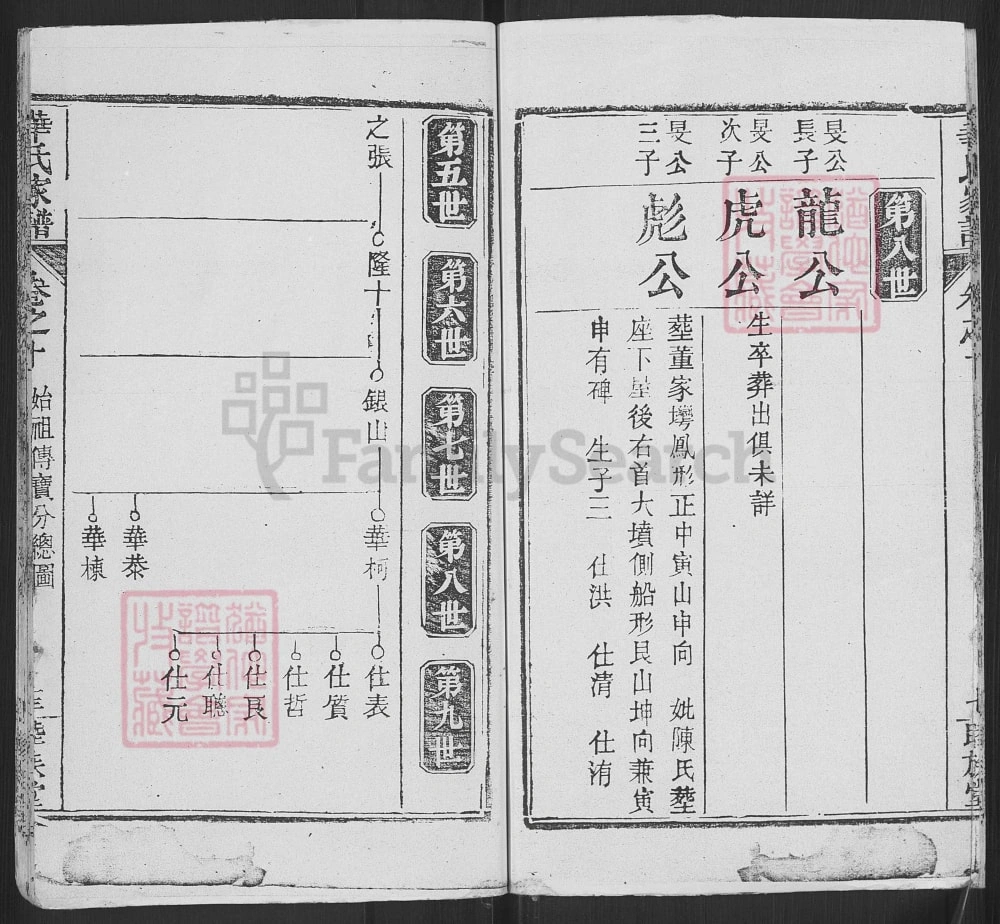 第八世
旻公長子
龍公
旻公次子
虎公
生卒葬出俱未詳
旻公三子
彪公
塟董家塆鳳形正中寅山申向 妣陳氏塟
座下星後右首大墳側船形艮山坤向兼寅
申有碑 生子三 仕洪 仕清 仕洧
第五世
第六世
第七世
第八世
第九世
之張
隆十
銀山
華柯
華榮
華棟
仕表
仕質
仕哲
仕良
仕聰
仕元
華氏家譜
卷之十
始祖傳寶分總圖
FamilySearch